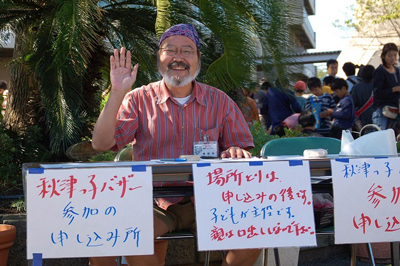 秋津っ子バザー
参加の
申し込み所
場所とりは
申し込みの後です。
子どもが主役です。
親は口出し一ヶ所です。
秋津っ
参
申し